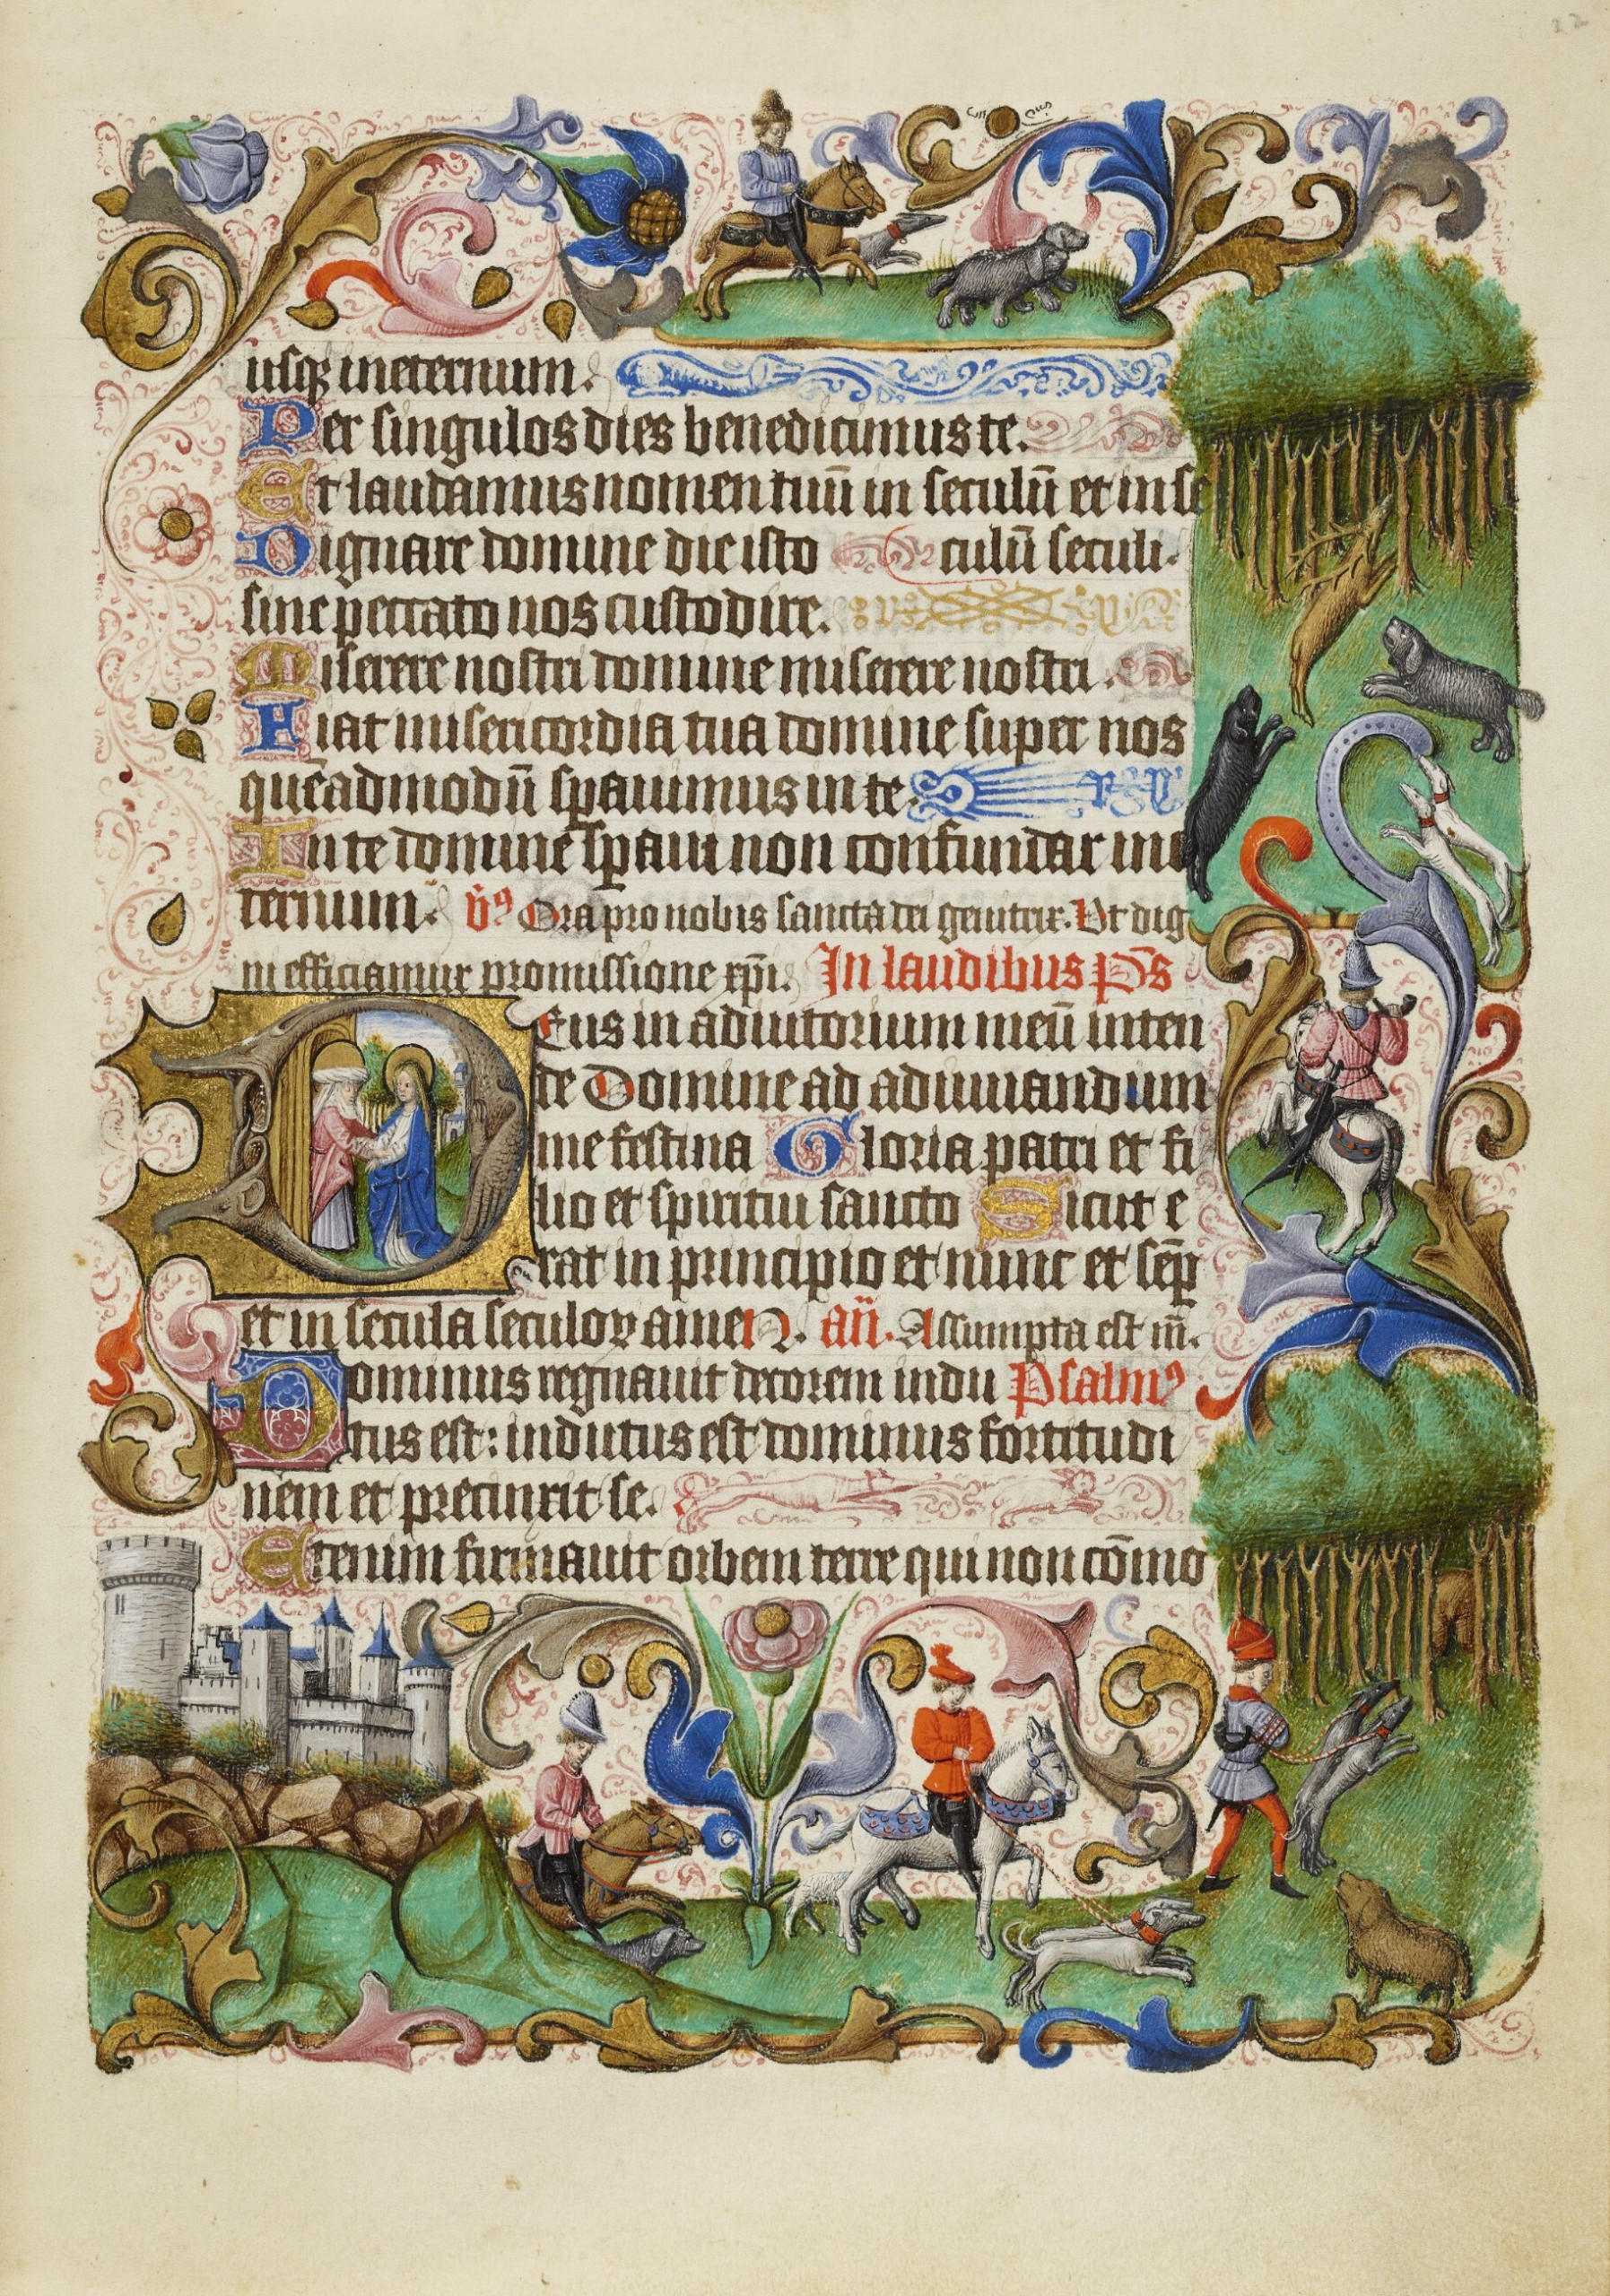 22
usqꝫ ineternum.
Per singulos dies benedicimus te.
Et laudamus nomen tuū in seculū et in se
Dignare domine die isto culū seculi.
sine peccato nos custodire.
Miserere nostri domine miserere nostri.
Fiat misericordia tua domine super nos
quēadmodū sꝑauimus in te.
In te domine sꝑaui non confundar in e
ternum. v̄ꝰ Ora pro nobis sancta dei genitrix. Vt dig
ni efficiamur promissione xp̄i. In laudibus Ps̄
Deus in adiutorium meū inten
de Domine ad adiuuandum
me festina Gloria patri et fi
lio et spiritui sancto Sicut e
rat in principio et nunc et sēꝑ
et in secula seculoꝝ amen. añ. Assumpta est m̄.
Dominus regnauit decorem indu Psalmꝰ
tus est: indutus est dominus fortitudi
nem et precinxit se.
Etenim firmauit orbem terre qui non cōmo